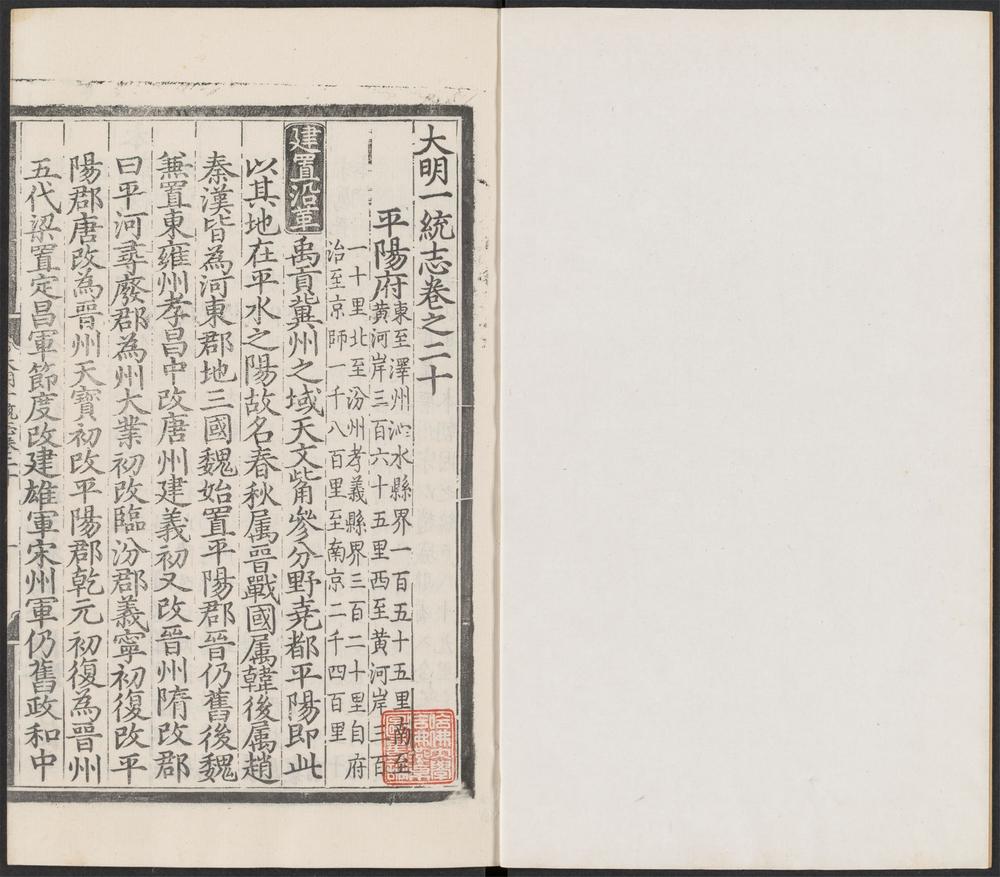 大明一統志卷之二十
平陽府東至澤州沁水縣界一百五十五里南至
黃河岸三百六十五里西至黃河岸三百
一十里北至汾州孝義縣界三百二十里自府
治至京師一千八百里至南京二千四百里
建置沿革禹貢冀州之域天文觜角參分野堯都平陽即此
以其地在平水之陽故名春秋属晉戰國属韓後属趙
秦漢皆為河東郡地三國魏始置平陽郡晉仍舊後魏
兼置東雍州孝昌中改唐州建義初又改晉州隋改郡
曰平河尋廢郡為州大業初改臨汾郡義寧初復改平
陽郡唐改為晉州天寶初改平陽郡乾元初復為晉州
五代梁置定昌軍節度改建雄軍宋州軍仍舊政和中